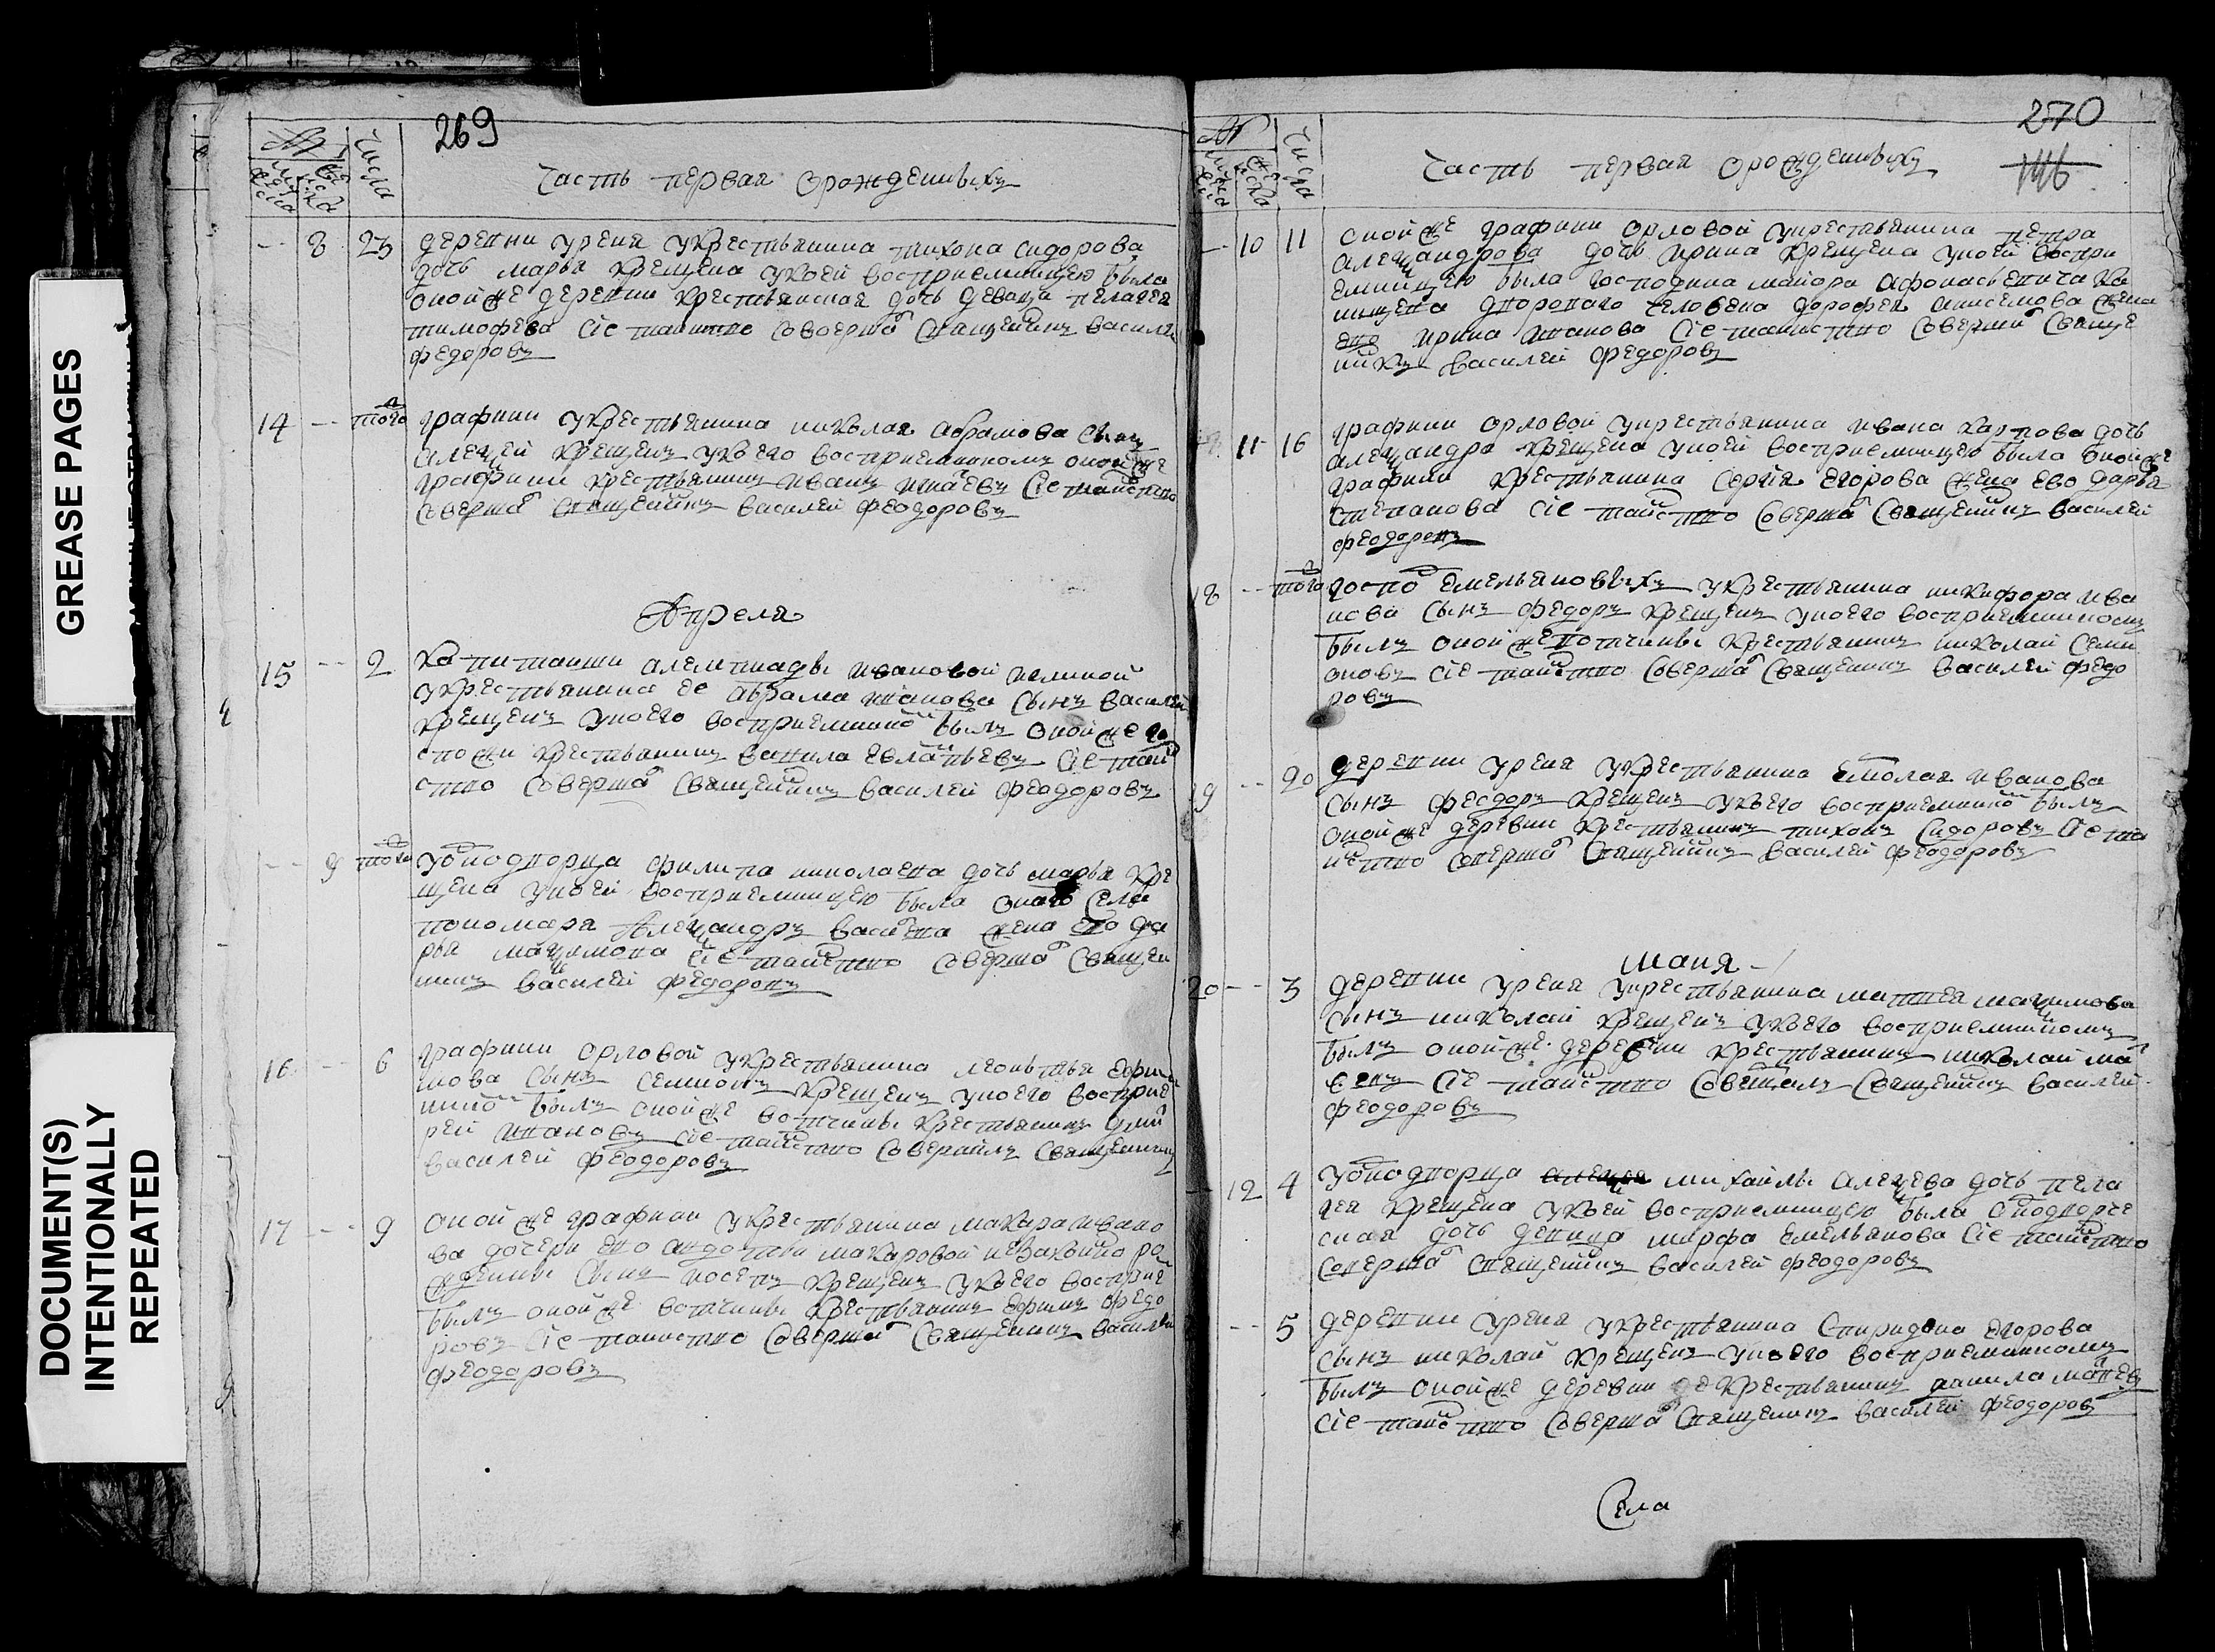 GREASE PAGES
DOCUMENT(S)
INTENTIONALLY
REPEATED
269
№
Числа
мужеска
женска
Часть первая орождешыхъ
8 23 деревни урена укрестьянина тихона сидорова
дочь марья крещена укоей восприемницею была
оной же деревни крестьянская дочь девица пелагея
тимофева сіе таинство соверша священникъ василеи
федоровъ
14 того графини укрестьянина николая абрамова сынъ
алеѯей крещенъ укоего восприемникомъ оной же
графини крестьянинъ иванъ сіе таинство
соверша священникъ василеи феодоровъ
Апреля
15 2 капитанши ивановой
укрестьянина ее абрама иванова сынъ василей
крещенъ укоего восприемнико былъ оной же го
спожи крестьянинъ вавила сіе таи
ство соверша священникъ василеи феодоровъ
9 того уоднодворца филипа николаева дочь марья кре
щена укоей восприемницею была онаго села
пономаря Алеѯандръ васиева жена ево да
рья маѯимова сіе таинство соверша священ
никъ василеи федоровъ
16 6 графини орловой укрестьянина леонтья ефи
мова сынъ семионъ крещенъ укоего восприе
мнико былъ оной же вотчины крестьянинъ
ивановъ сіе таинство совершилъ священникъ
василеи феодоровъ
17 9 оной же графини укрестьянина макара ивано
ва дочери ево авдотьи макаровой незаконно ро
жденны сынъ иосевъ крещенъ укоего восприе
былъ оной же вотчины крестьянинъ ефимъ федо
ровъ сіе таинство соверша священникъ василеи
феодоровъ
270
№
Числа
мужеска
женска
Часть первая орождешыхъ
10 11 оной же графини орловой укрестьянина петра
алеѯандрова дочь ирина крещена укоей воспри
емницею была господина майора афонасьевича
двороваго человека дорофея анисимова жена
ево ирина иванова сіе таинство соверши свяще
никъ василеи федоровъ
11 16 графини орловой укрестьянина ивана карпова дочь
алеѯандра крещена укоей восприемницею была оной же
графини крестьянина сергія егорова жена ево дарья
степанова сіе таинство соверша священникъ василеи
феодоровъ
18 того госпо емельяновыхъ укрестьянина никифора ива
нова сынъ федоръ крещенъ укоего восприемникомъ
былъ оной же вотчины крестьянинъ николай семи
оновъ сіе таинство соверша священникъ василеи федо
ровъ
19 20 деревни урена укрестьянина ермолая иванова
сынъ феодоръ крещенъ укоего восприемнико былъ
оной же деревни крестьянинъ тихонъ сидоровъ сіе та
инство соверша священникъ василеи феодоровъ
маия
20 3 деревни урена укрестьянина матвея маѯимова
сынъ николай крещенъ укоего восприемникомъ
былъ оной же деревни крестьянинъ николай ма
веевъ сіе таинство священникъ василеи
феодоровъ
12 4 уоднодворца михайлы алеѯева дочь пела
гея крещена укоей восприемницею была однодворче
ская дочь девица марфа емельянова сіе таинство
соверша священникъ василеи феодоровъ
5 деревни урена укрестьянина спиридона егорова
сынъ николай крещенъ укоего восприемникомъ
былъ оной же деревни крестьянинъ данила
сіе таинство соверша священникъ василеи феодоровъ
Села